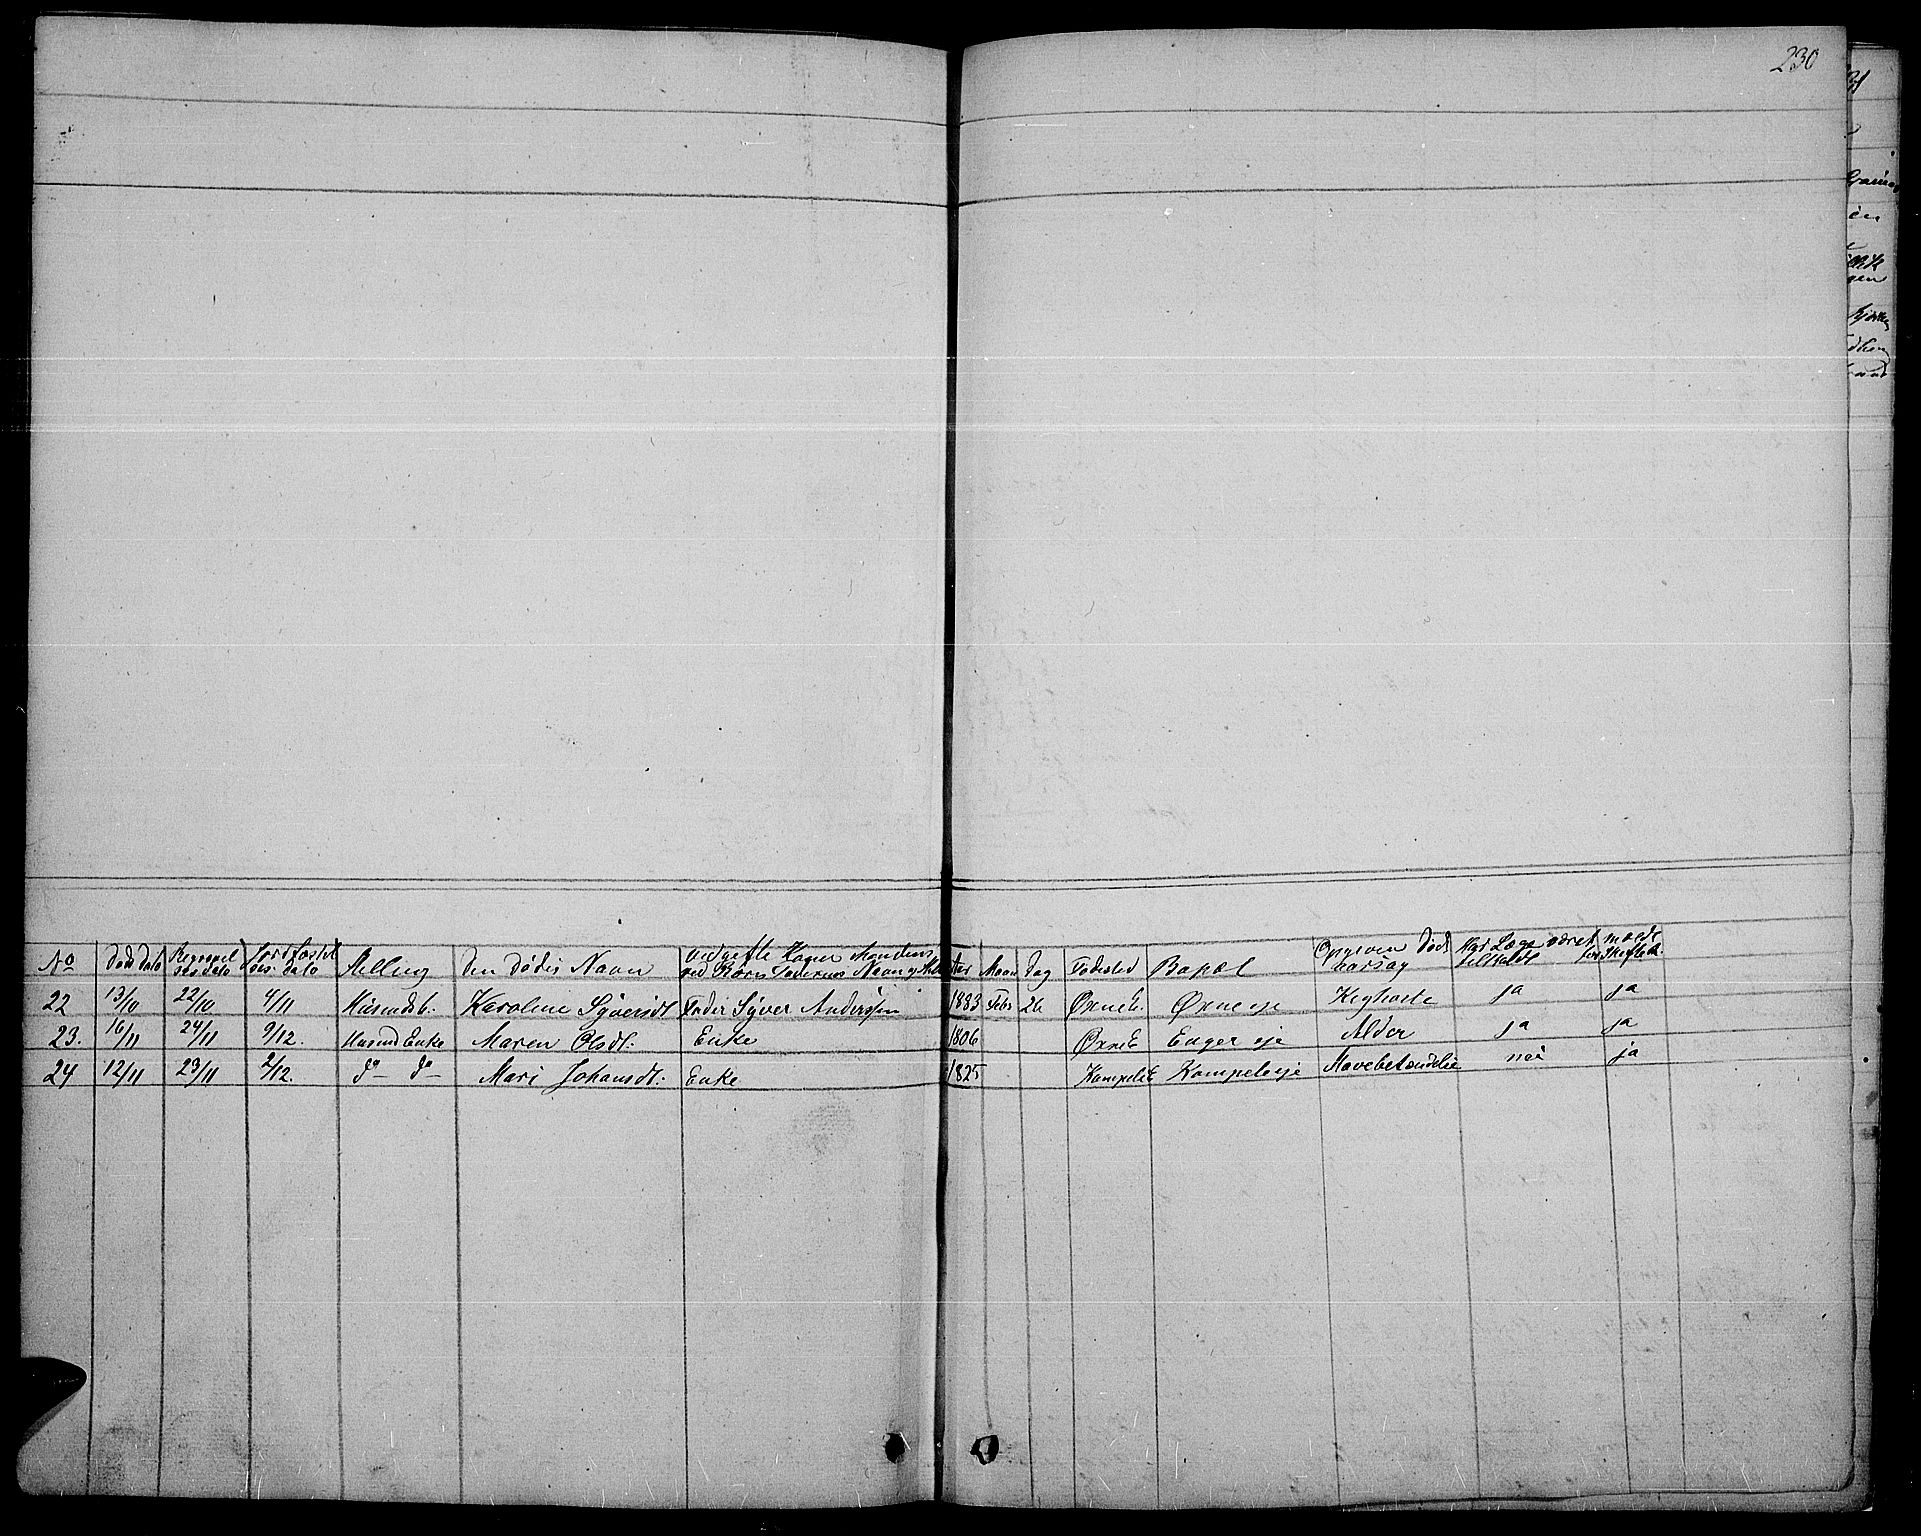 230
No Døds Dato Begravel sesdato Jordfæstel ses dato Stilling Den Dødes Navn ved gifte Koner Mandens ved Børn Faderens Navn Aar Maan Dag Fødested Bopæl Opgiven Døds aarsag Har Læge været tilkaldt
22 13/10 22/10 4/11 Husmdsb. Karoline Syversdt Fader Syver Andersen 1833 Febr 26 Øxne E. Øxne eje Kighoste ja ja
23. 16/11 24/11 9/12. Husmd Enke Maren Olsdt. Enke 1806 Øxne E Enger eje Alder ja ja
24 12/11 23/11 2/12. do do Mari Johansdt. Enke 1825 Kampeli E Kampeli eje Mavebetændelse nei ja